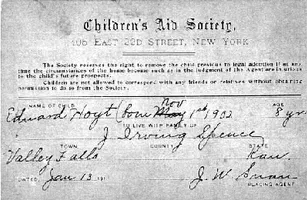 Children's Aid Society,
105 EAST 22D STREET, NEW YORK
The Society reserves the right to remove the child previous to legal adoption if at any
time the circumstances of the home become such as in the judgment of the Agent are injurious
to the child's future prospects.
Children are not allowed to correspond with any friends or relatives without obtaining
permission to do so from the Society.
NAME OF CHILD
Edward Hoyt (born Nov May 1st 1902 AGE 8 yrs
TO LIVE WITH FAMILY OF
J. Irving Spence
TOWN COUNTY STATE
Valley Falls Kan.
DATED, Jan 13 191 J. W. Swan
PLACING AGENT